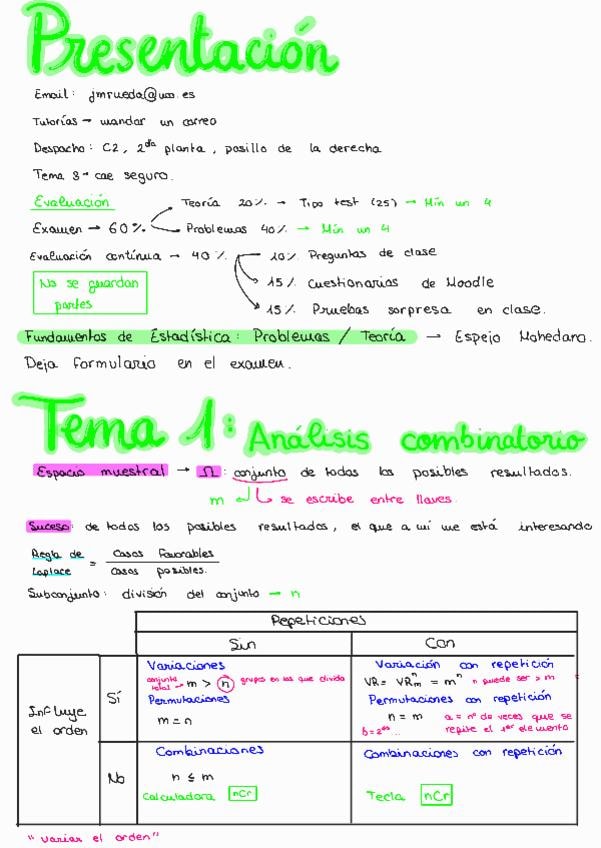 Presentación
Email: jmrueda@uco.es
Tutorías → mandar un correo
Despacho: C2, 2da planta, pasillo de la derecha
Tema 3 → cae seguro.
Evaluación
Teoría 20% → Tipo test (25) → Mín un 4
Examen → 60% → Problemas 40% → Mín un 4
Evaluación contínua → 40% → 10% Preguntas de clase
15% Cuestionarios de Moodle
No se guardan
partes
15% Pruebas sorpresa en clase.
Fundamentos de Estadística: Problemas / Teoría → Espejo Mohedano.
Deja formulario en el examen.
Tema 1: Análisis combinatorio
Espacio muestral → Ω: conjunto de todos los posibles resultados.
m ↲ ↳ se escribe entre llaves.
Suceso: de todos los posibles resultados, el que a mí me está interesando
Regla de Laplace = Casos favorables / casos posibles.
Subconjunto: división del conjunto → n
Repeticiones
Sin Con
Influye el orden
Sí
Variaciones
conjunto total → m > n grupos en los que divido
Permutaciones
m = n
Variación con repetición
VR = VRₘⁿ = mⁿ n puede ser > m
Permutaciones con repetición
n = m a = nº de veces que se
b = 2º... repite el 1er elemento
No
Combinaciones
n ≤ m
Calculadora nCr
Combinaciones con repetición
Tecla nCr
"variar el orden"